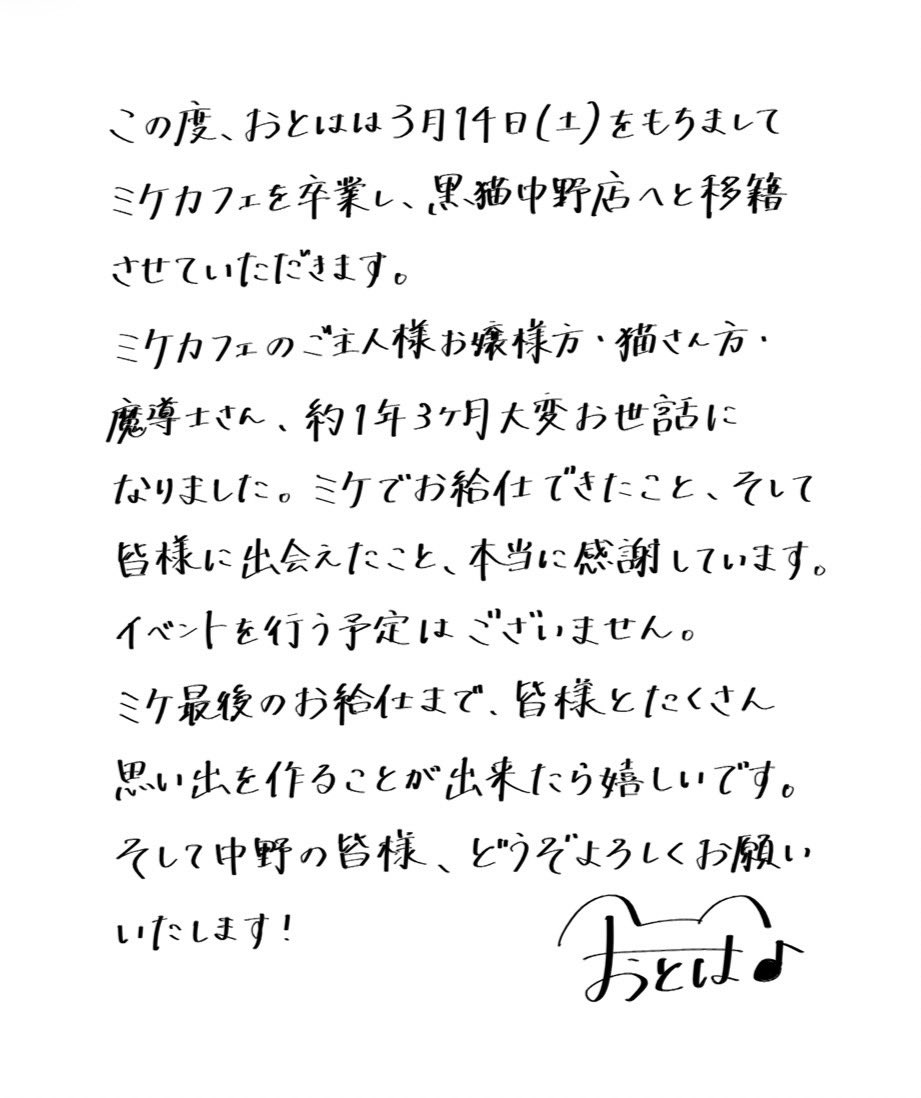 この度、おとはは3月14日(土)をもちまして
ミケカフェを卒業し、黒猫中野店へと移籍
させていただきます。
ミケカフェのご主人様お嬢様方・猫さん方・
魔導士さん、約1年3ヶ月大変お世話に
なりました。ミケでお給仕できたこと、そして
皆様に出会えたこと、本当に感謝しています。
イベントを行う予定はございません。
ミケ最後のお給仕まで、皆様とたくさん
思い出を作ることが出来たら嬉しいです。
そして中野の皆様、どうぞよろしくお願い
いたします!
おとは♪